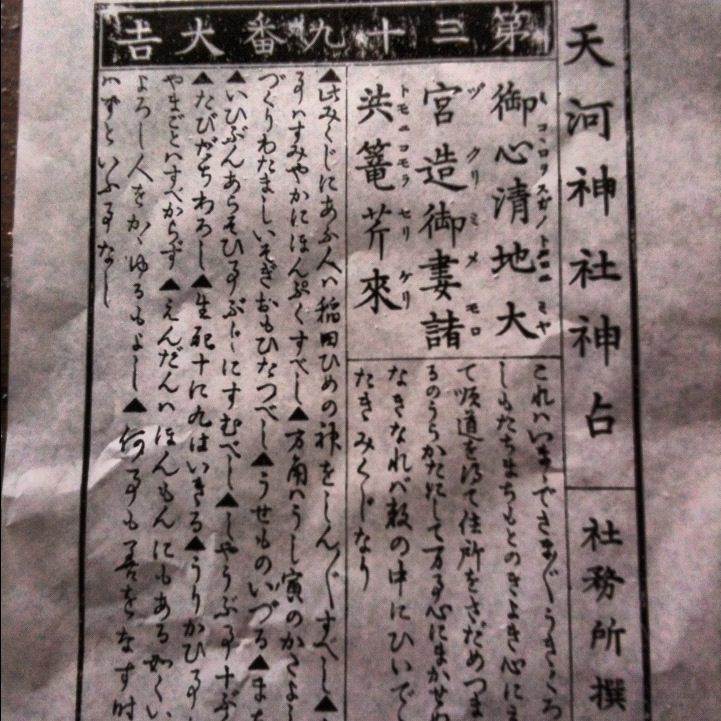 天河神社神占
社務所撰
第三十九番大吉
御心清地大
宮造御妻諸
共篭芹來
ミコヽロスガノトコロニ ミヤ
ヅクリミメモロ
トモニコモラセリケリ
しもたちまちもとのきよき心に
て順道を得て住所をさだめつま
るのうらかたにして万る心にまかせぬ
なきなれバ数の中にひいで
たきみくじなり
▲此みくじにあふ人ハ稲田ひめの神をしん〴〵すべし▲
るハすみやかにほんぷくすべし▲方角ハうし寅のかたよし
づくりわたましいそぎおもひたつべし▲うせものいづる▲また
▲いひぶんあらそひ ぶじにすむべし▲しやうぶ 十ぶ
▲たびがちわろし▲生死十に九はいきる▲うりかひ
やまごとハすべからず▲えんだんハほんもんにもある如くい
よろし人をかゝゆるもよし▲何 も善をなす時
ハ といふ なし